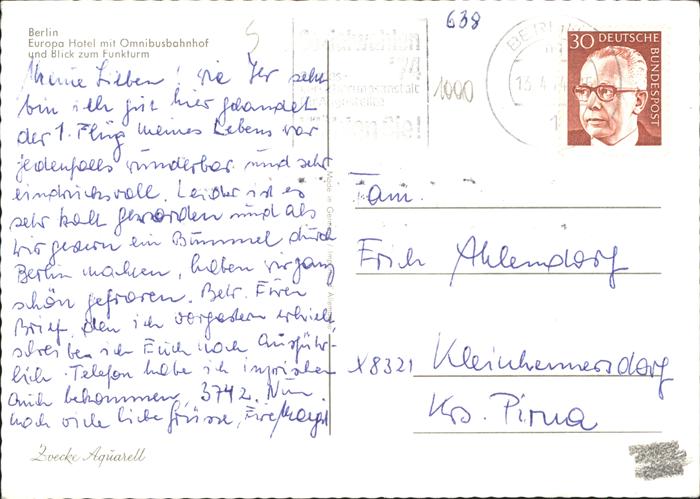 Berlin
Europa Hotel mit Omnibusbahnhof
und Blick zum Funkturm
638
1000
BERLIN
30 DEUTSCHE
BUNDESPOST
Meine Lieben! Wie Ihr seht
bin ich gut hier gelandet
der 1. Flug meines Lebens war
jedenfalls wunderbar und sehr
eindrucksvoll. Leider ist es
sehr kalt geworden und als
wir gestern ein Bummel durch
Berlin machten, haben wir ganz
schön gefroren. Betr. Euren
Brief, den ich vorgestern erhielt,
schreiben ich Euch noch ausführ-
lich. Telefon habe ich inzwischen
auch bekommen, 3742. Nun
noch viele liebe Grüsse, Eure
Fam.
Erich Ahlendorf
X8321 Kleinhennersdorf
Krs. Pirna
Zvecke Aquarell